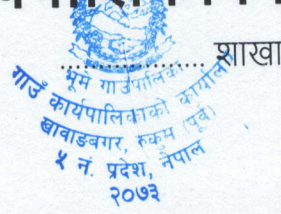 शाखा
भूमे गाउँपालिका
गाउँ कार्यपालिकाको कार्यालय
खावाङबगर, रुकुम (पूर्व)
५ नं. प्रदेश, नेपाल
२०७३